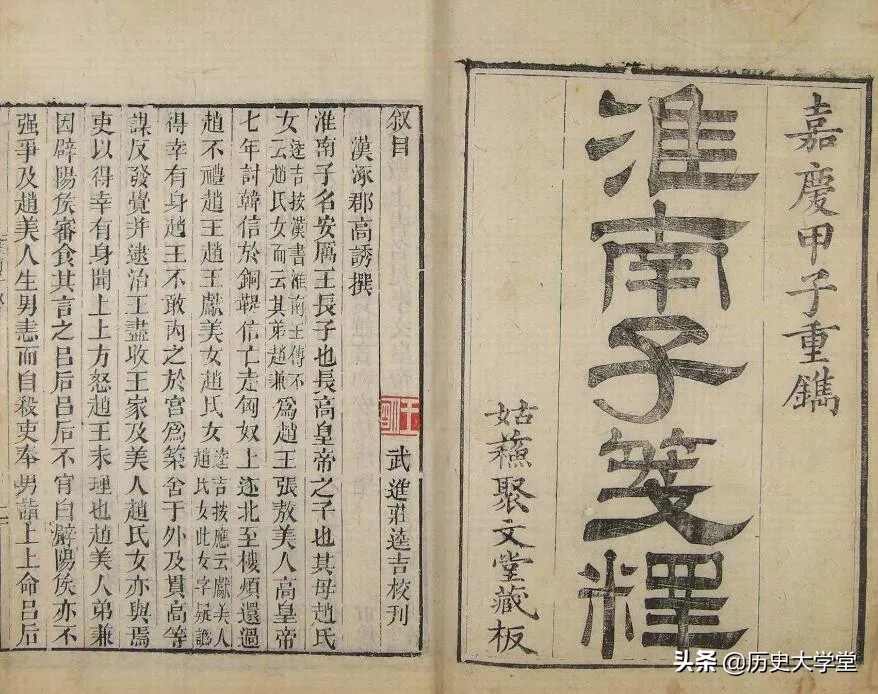 嘉慶甲子重鐫
淮南子箋釋
姑蘓聚文堂藏板
叙目
漢涿郡高誘撰 武進莊逵吉校刊
淮南子名安厲王長子也長高皇帝之子也其母趙氏
女逵吉按漢書淮南王傳不云趙氏女而云其弟趙兼為趙王張敖美人高皇帝
七年討韓信於銅鞮信亡走匈奴上遂北至樓煩還過
趙不禮趙王趙王獻美女趙氏女逵吉按應云獻美人趙氏女此女字疑譌
得幸有身趙王不敢內之於宮為築舍于外及貫高等
謀反發覺并逮治王盡收王家及美人趙氏女亦與焉
吏以得幸有身聞上上方怒趙王未理也趙美人弟兼
因辟陽侯審食其言之呂后呂后不肯白辟陽侯亦不
强爭及趙美人生男恚而自殺吏奉男詣上上命呂后
头条 @历史大学堂